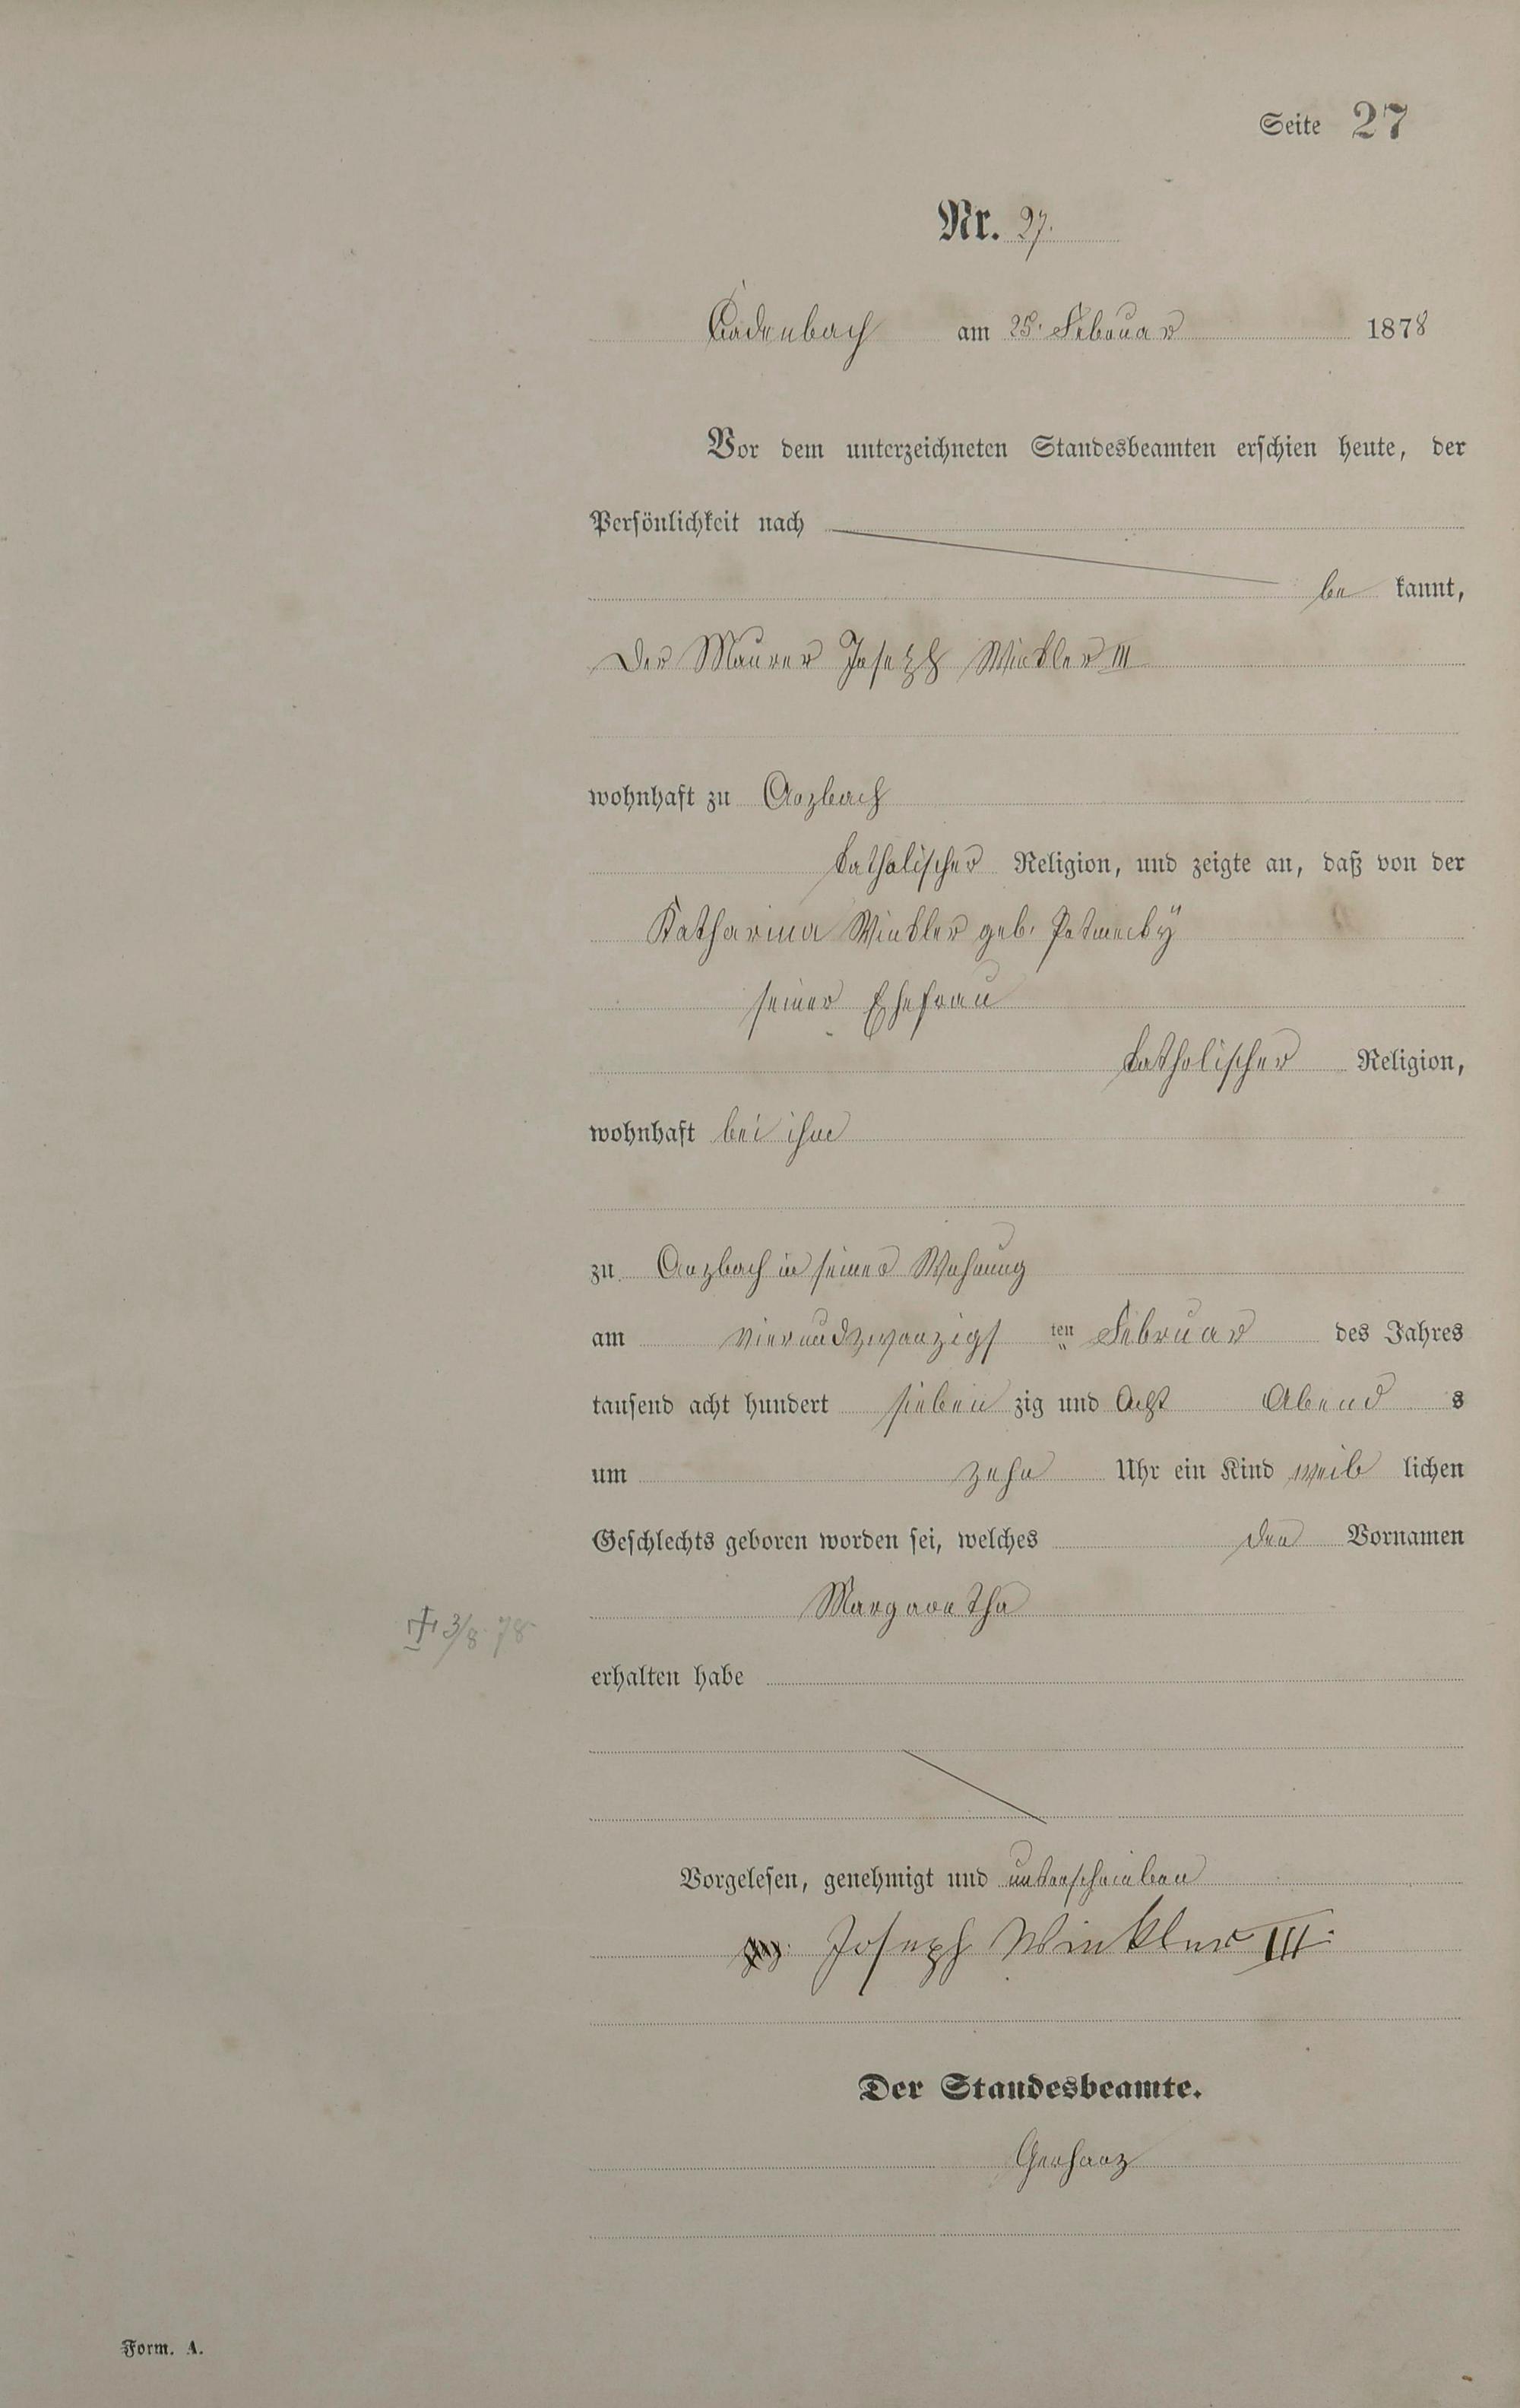 Seite 27
Nr. 27.
Cadenbach am 25. Februar 1878
Vor dem unterzeichneten Standesbeamten erschien heute, der
Persönlichkeit nach
be kannt,
der Maurer Joseph Winkler III
wohnhaft zu Arzbach
katholischer Religion, und zeigte an, daß von der
Katharina Winkler geb. Petmecky
seiner Ehefrau
katholischer Religion,
wohnhaft bei ihm
zu Arzbach in seiner Wohnung
am vierundzwanzigs ten Februar des Jahres
tausend acht hundert sieben zig und acht Abend s
um zehn Uhr ein Kind weib lichen
Geschlechts geboren worden sei, welches den Vornamen
Margaretha
+ 3/8 78
erhalten habe
Vorgelesen, genehmigt und unterschrieben
Joseph Winkler III.
Der Standesbeamte.
Gerharz
Form. A.